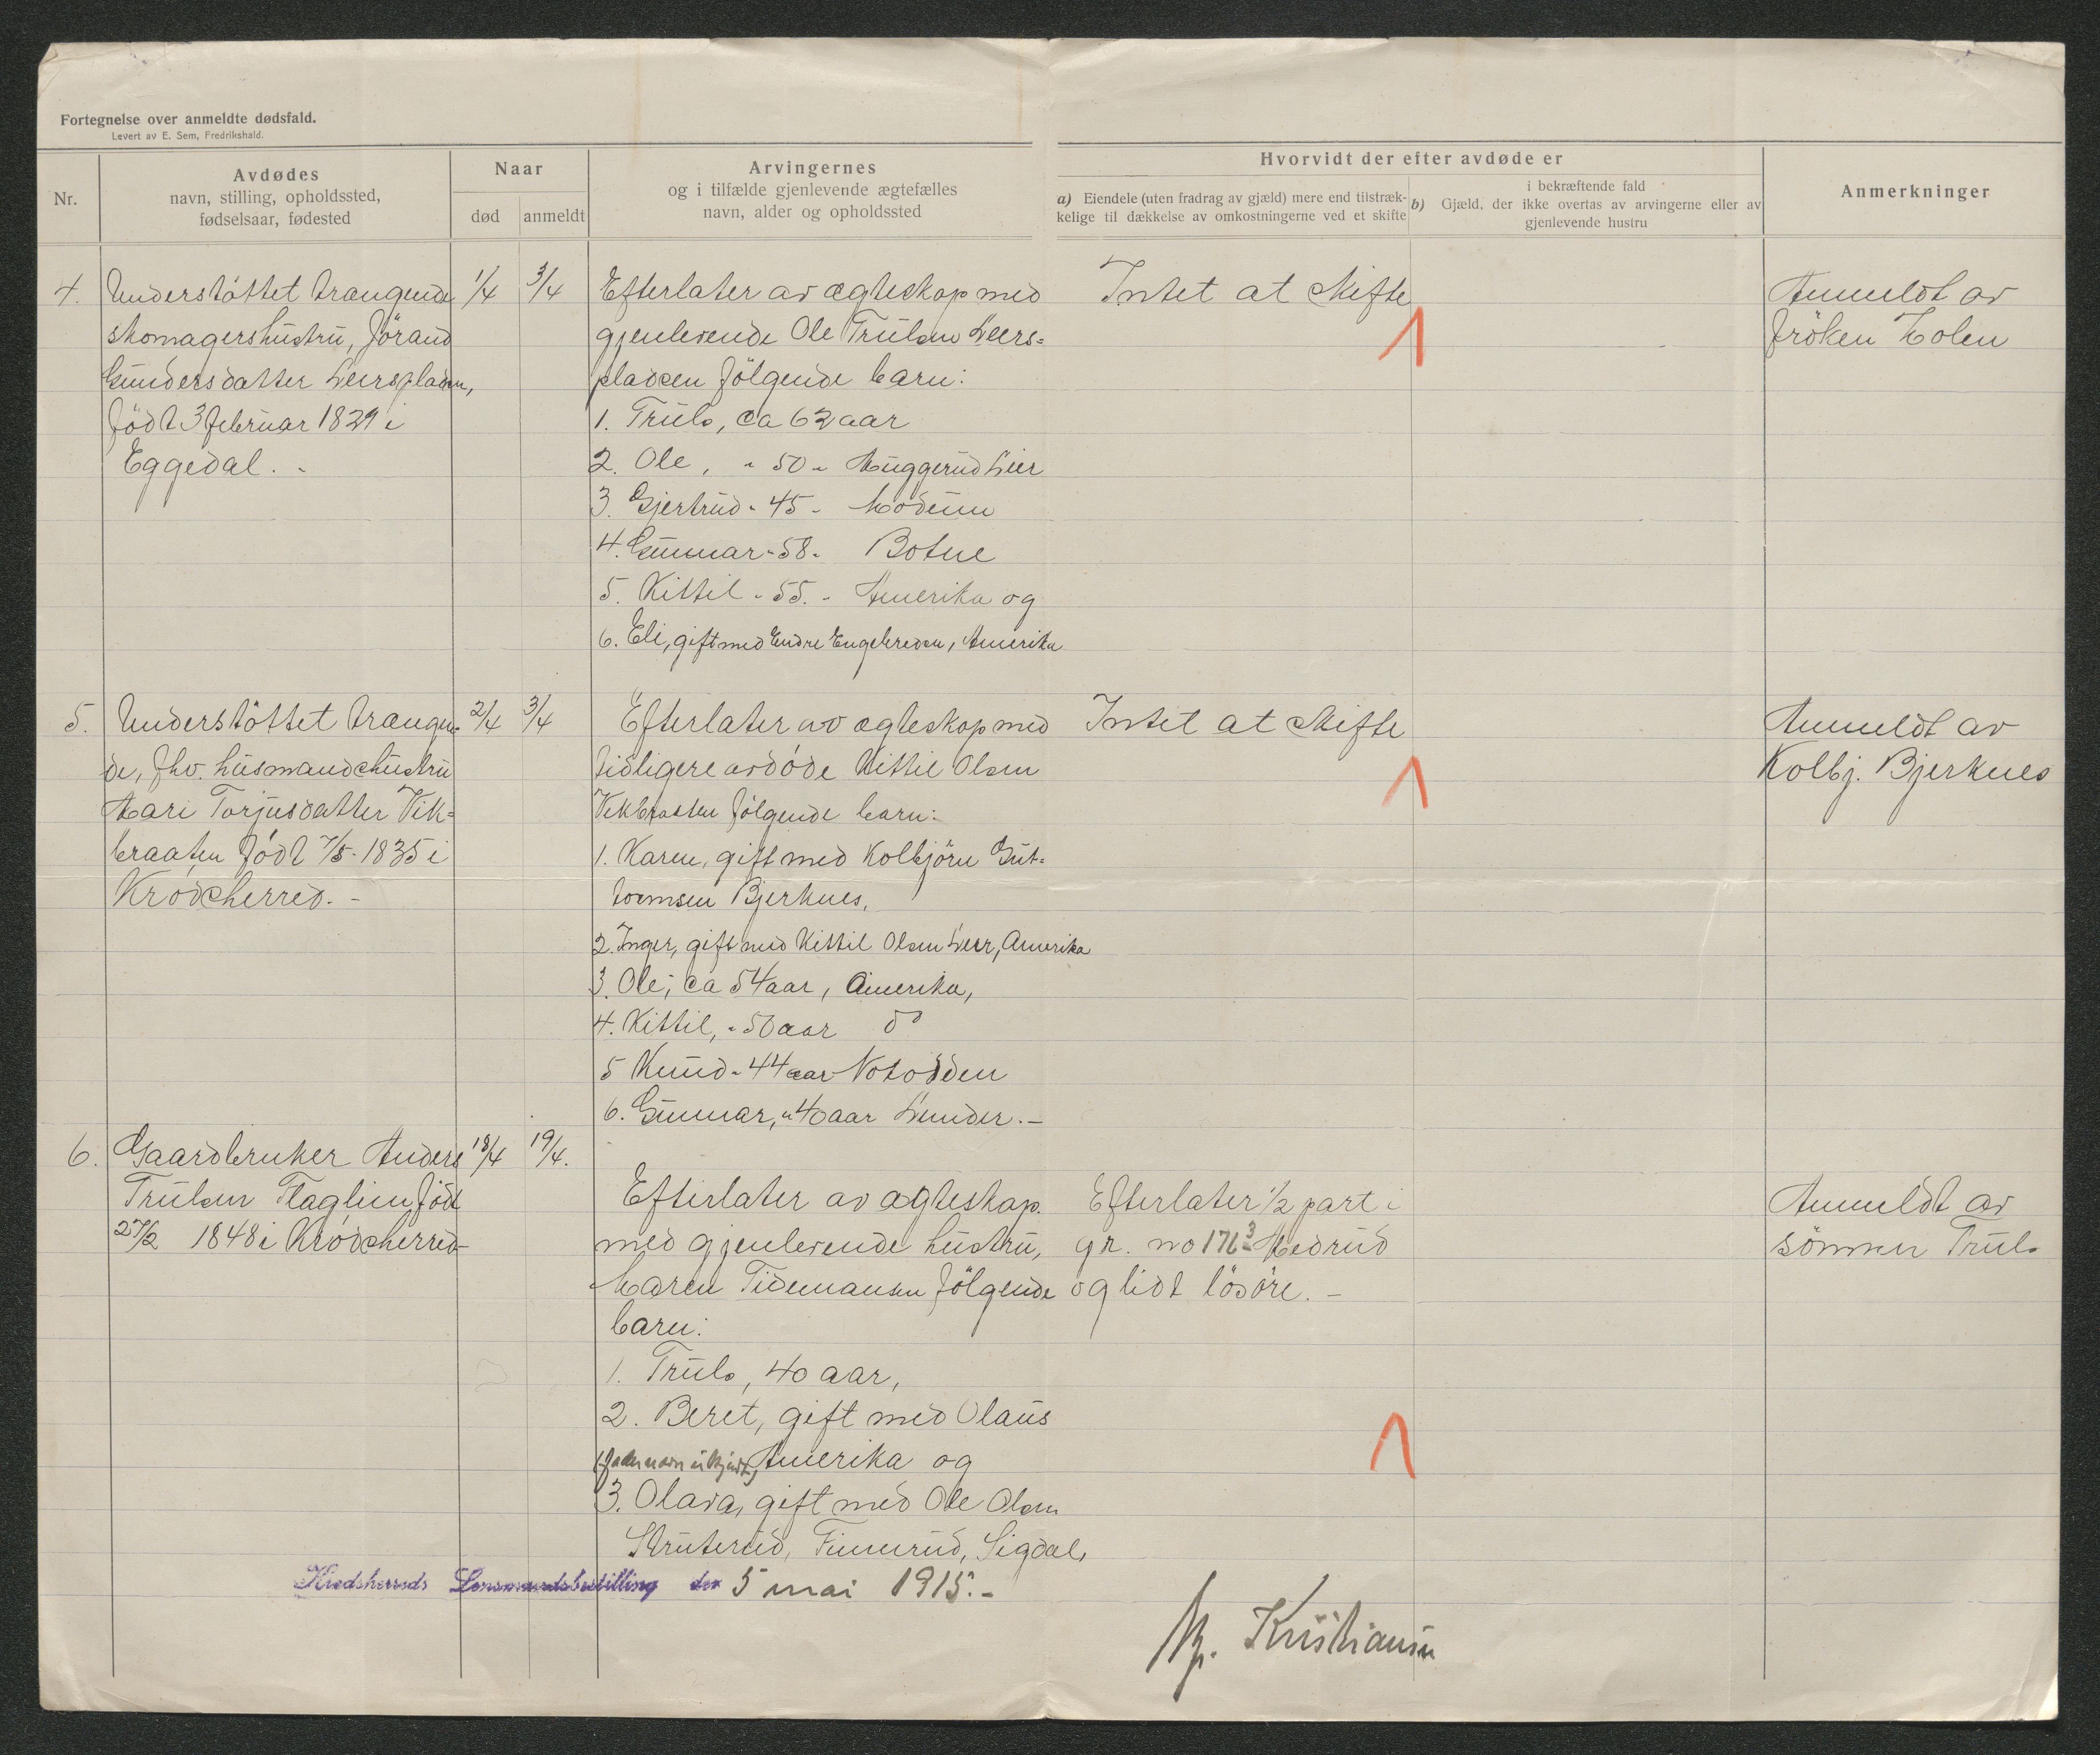 Fortegnelse over anmeldte dødsfald.
Levert av E. Sem, Fredrikshald.
Nr.
Avdødes
navn, stilling, opholdssted,
fødselsaar, fødested
Naar
død
anmeldt
Arvingernes
og i tilfælde gjenlevende ægtefælles
navn, alder og opholdssted
Hvorvidt der efter avdøde er
a) Eiendele (uten fradrag av gjæld) mere end tilstræk-
kelige til dækkelse av omkostningerne ved et skifte
i bekræftende fald
b) Gjæld, der ikke overtas av arvingerne eller av
gjenlevende hustru
Anmerkninger
4.
Understöttet trængende
skomagershustru, Jörand
Gundersdatter Leerspladsen,
født 3 februar 1829 i
Eggedal. -
1/4
3/4
Efterlater av ægteskap med
gjenlevende Ole Trulsen Leers=
pladsen følgende barn:
1. Truls, ca 62 aar
2. Ole, " 50 " Muggerud Lier
3. Gjertrud " 45 " Modum
4. Gunnar " 58 " Botne
5. Kittil " 55. " Amerika og
6. Eli, gift med Endre Engebretsen, Amerika
Intet at skifte
Anmeldt av
fröken Holen
5.
Understöttet trængen-
de, fhv. husmandshustru
Mari Torjusdatter Vik=
braaten født 7/5 - 1835 i
Krødsherred. -
2/4
3/4
Efterlater av ægteskap med
tidligere avdøde Kittil Olsen
Vikbraaten følgende barn:
1. Karen, gift med Kolbjörn Gut=
tormsen Bjerknes,
2. Inger, gift med Kittil Olsen Leer, Amerika
3. Ole, ca 54 aar, Amerika,
4. Kittil, " 50 aar do
5 Knud " 44 aar Notodden
6. Gunnar, " 40 aar Lunder. -
Intet at skifte
Anmeldt av
Kolbj. Bjerknes
6.
Gaardbruker Anders
Trulsen Flaglien født
27/2 1848 i Krødsherred
18/4
19/4.
Efterlater av ægteskap
med gjenlevende hustru,
Maren Tidemansen følgende
barn:
1. Truls, 40 aar,
2. Beret, gift med Olaus
(farsnavn ukjendt) Amerika og
3. Olava, gift med Ole Olsen
Struterud, Finnerud, Sigdal,
Efterlater 1/2 part i
gr. no 176³ Medrud
og lidt lösöre. -
Anmeldt av
sönnen Truls
Krødsherreds Lensmandsbestilling den 5 mai 1915. -
Kristiansen